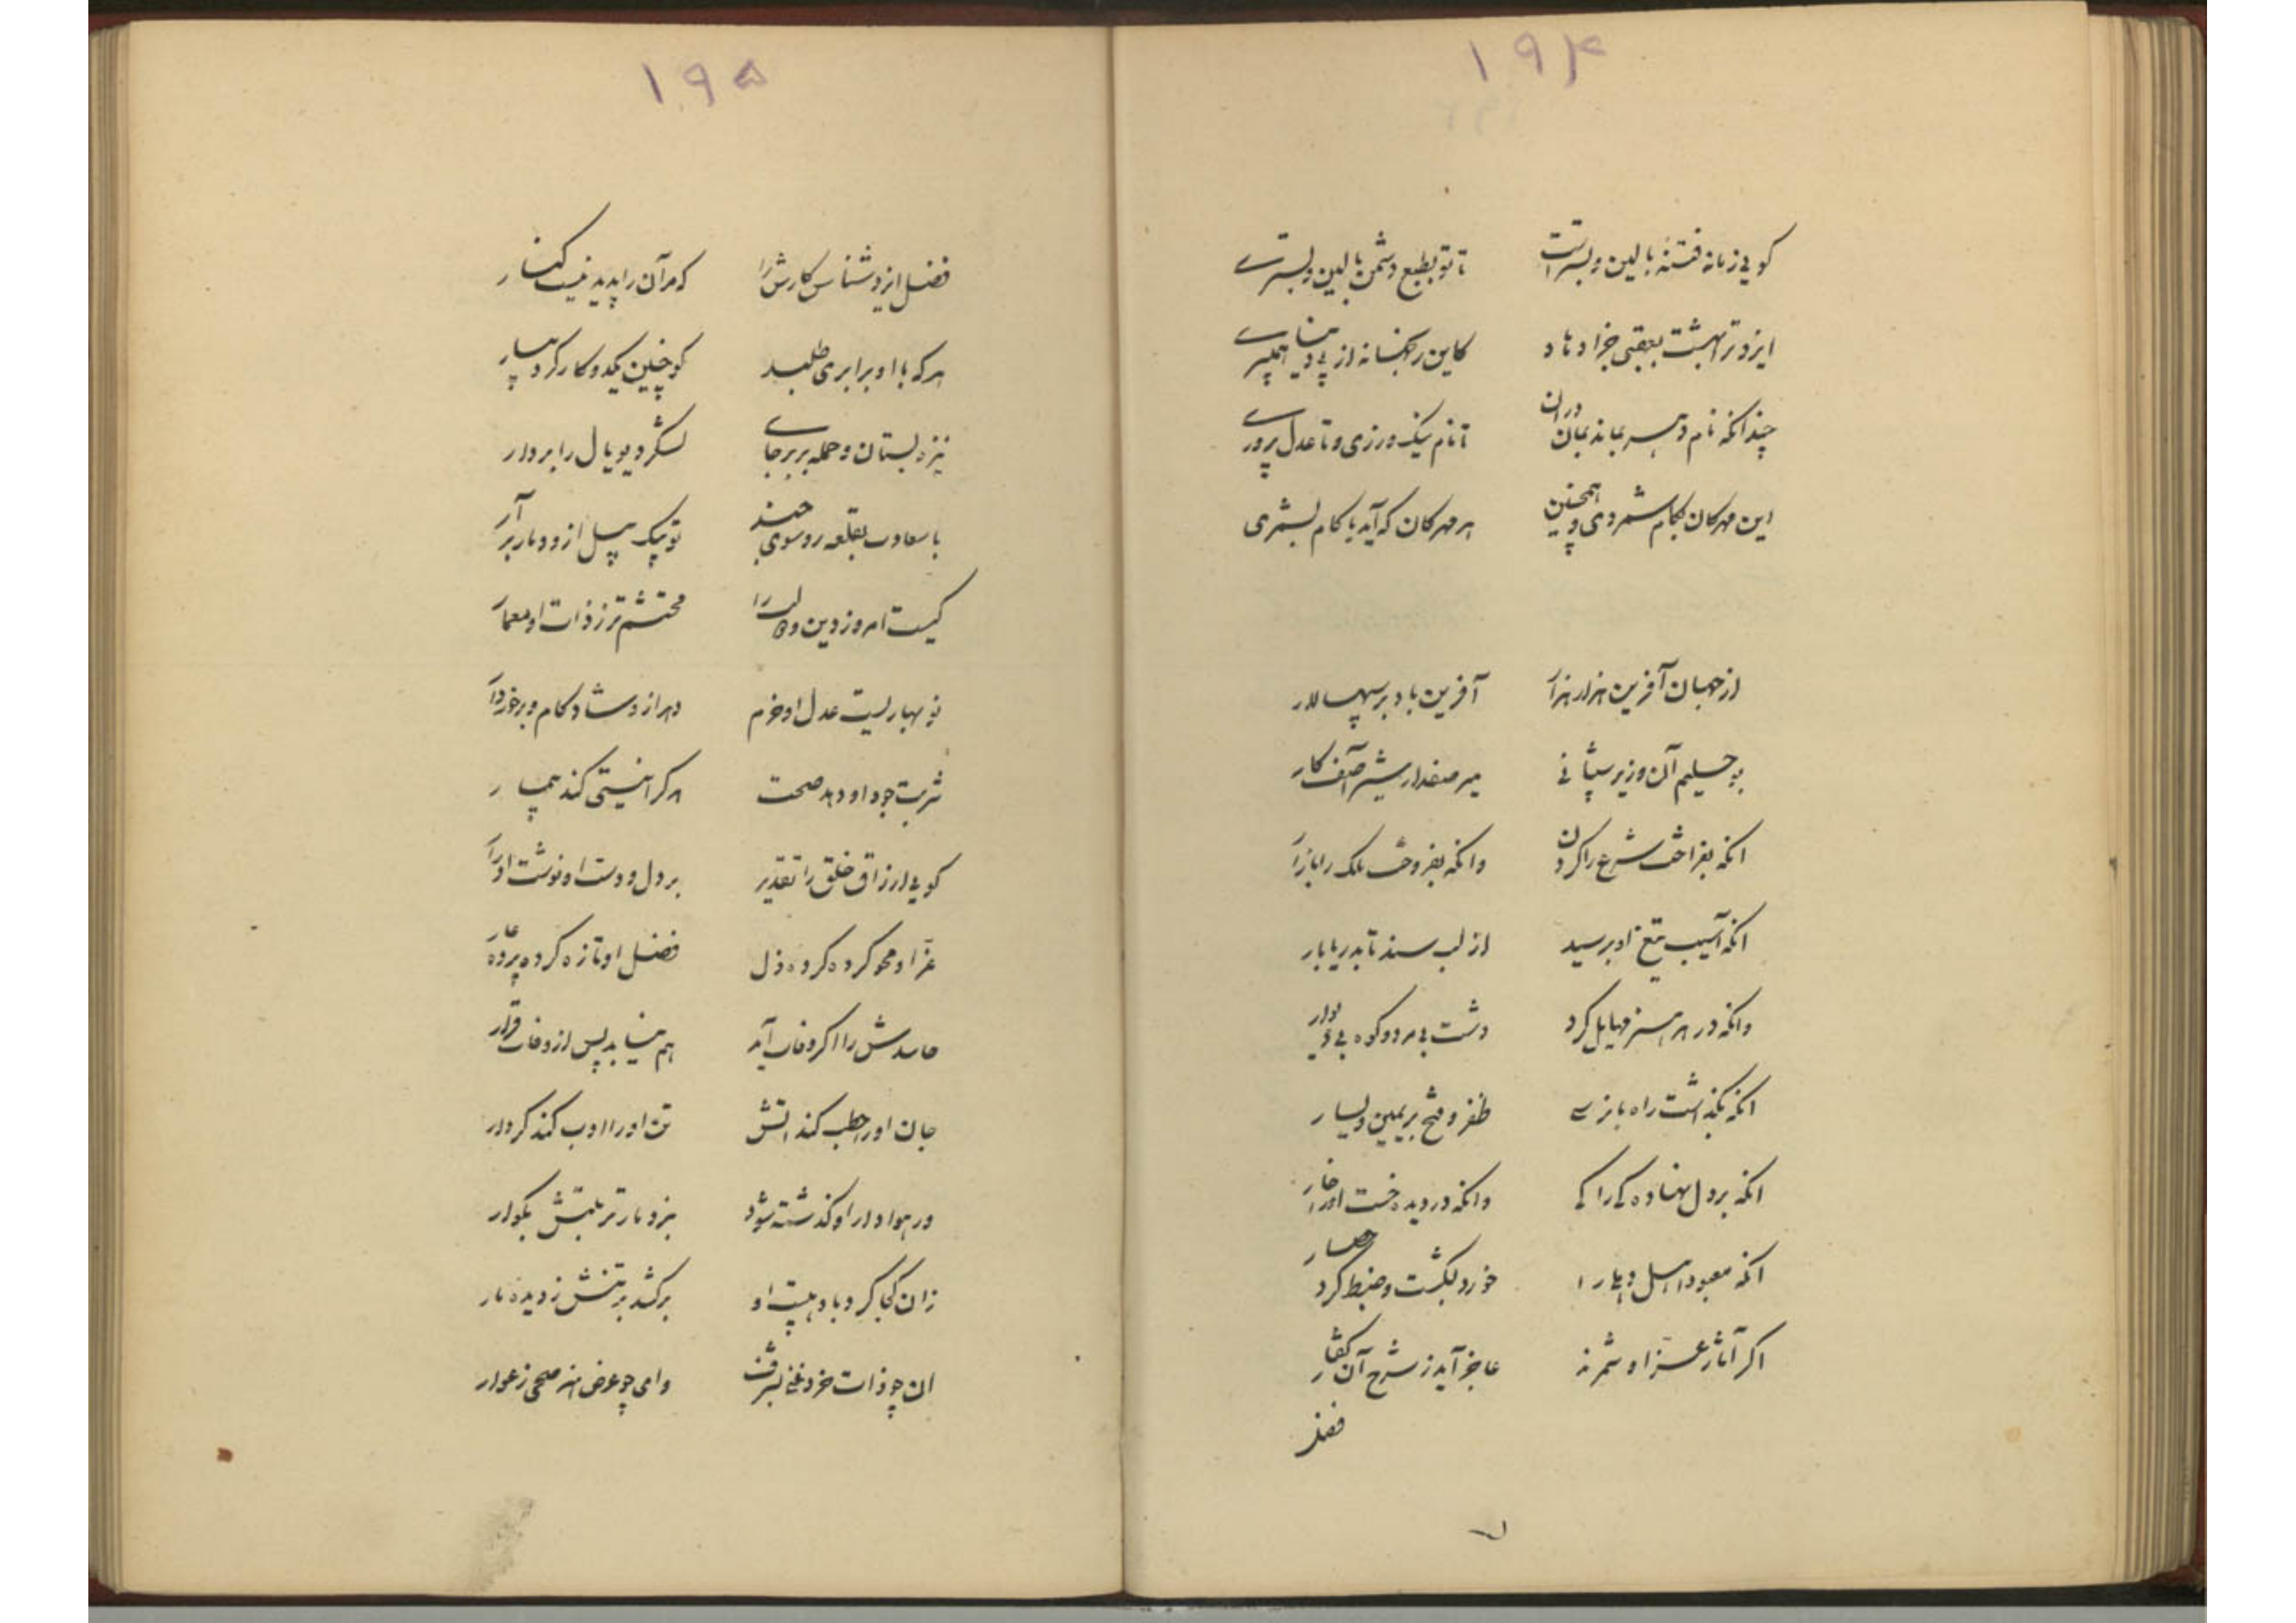 ۱۹۴
کوی زمانه فتنه بالین و بسترست تا تو بطبع دشمن بالین و بستری
ایزد ترا بهشت بعقبی جزا دهاد کاین رنجها نه از پی دنیا همی‌بری
چندانکه نام و تا نام نیک ورزی و تا عدل پروری
این مهرکان بکام شمردی و همچنین هر مهرکان که آید با کام بشمری
از جهان آفرین هزار هزار آفرین باد بر سپهسالار
بو حلیم آن وزیر شیبانی میر صفدار شیر آصف کار
انکه بفراخت شرع را کردن وانکه بفروخت ملک را بازار
انکه آسیب تیغ او برسید از لب سند تا بدریا بار
وانکه در هر هنر کرد دشت بی مرد و کوه بی
انکه بگذاشت راه بازی ظفر و فتح بر یمین و یسار
انکه بر دل نهاده کی را کی وانکه در دیده خست او را خار
انکه معبود اهل را خورد بگشت و ضبط کرد حصار
اگر آثار عز او شمرند عاجز آید ز شرح آن کفار
فضل
۱۹۵
فضل ایزد شناس کارش را که مر آن را پدید نیست کنار
هر که با او برابری طلبد کو چنین یکدو کار کرد بیار
نیزه بستان و حمله بر بر جای لشکر دیو یال را بردار
با سعادت بقلعه رو سوی هند تو پیک پیل ازو دمار برآر
کیست امروز دین و دولت را محتشم‌تر ز ذات او معمار
نو بهاریست عدل او خرم دهر ازو شاد کام و برخوردار
شربت جود او دهد صحت هر کرا نیستی کند بیمار
کوی ارزاق خلق را تقدیر بر دل و دست او نوشت ادرار
عز او محو کرده کرده ذل فضل او تازه کرده پرده عار
حاسدش را اگر وفات آید هم نیابد پس از وفات قرار
جان او را حطب کند اتش تن او را ادب کند کردار
ور هوادار او گذشته شود بر
زان کجا گرد باد هیبت او برکشد بر تنش ز دیده
ان چو ذات خرد وامی چو عرض